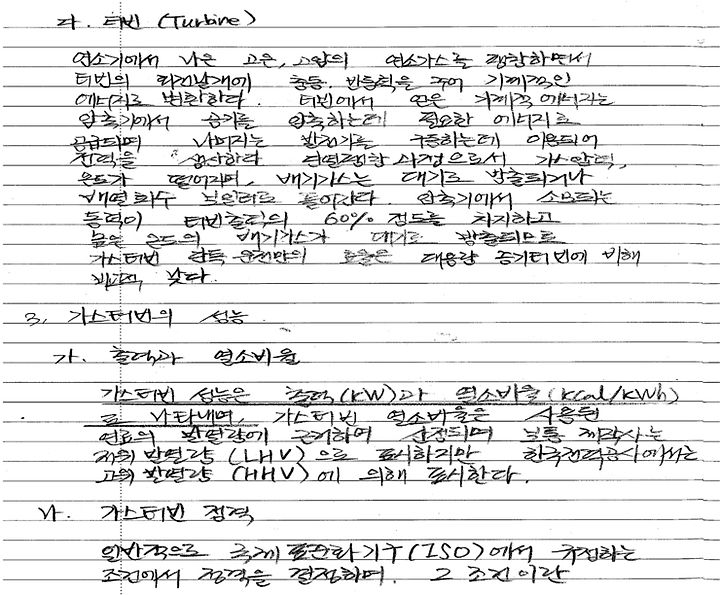 다. 터빈 (Turbine)
연소기에서 나온 고온, 고압의 연소가스를 팽창하면서
터빈의 회전날개에 충동. 반동력을 주어 기계적인
에너지로 변환한다. 터빈에서 얻은 기계적 에너지는
압축기에서 공기를 압축하는데 필요한 에너지로
공급되며 나머지는 발전기를 구동하는데 이용되어
전력을 생산한다 단열팽창 과정으로서 가스압력,
온도가 떨어지며, 배기가스는 대기로 방출되거나
배열회수 보일러로 들어간다. 압축기에서 소모되는
동력이 터빈출력의 60% 정도를 차지하고
높은 온도의 배기가스가 대기로 방출되므로
가스터빈 단독 운전만의 효율은 대용량 증기터빈에 비해
비교적 낮다.
3. 가스터빈의 성능
가. 출력과 열소비율
가스터빈 성능은 출력(KW)과 열소비율(Kcal/KWh)
로 나타내며, 가스터빈 열소비율은 사용된
연료의 발열량에 근거하여 산정되며 보통 제작사는
저위 발열량 (LHV) 으로 표시하지만 한국전력공사에서는
고위 발열량 (HHV) 에 의해 표시한다.
나. 가스터빈 정격
일반적으로 국제 표준화기구 (ISO) 에서 규정하는
조건에서 정격을 결정하며. 그 조건이란